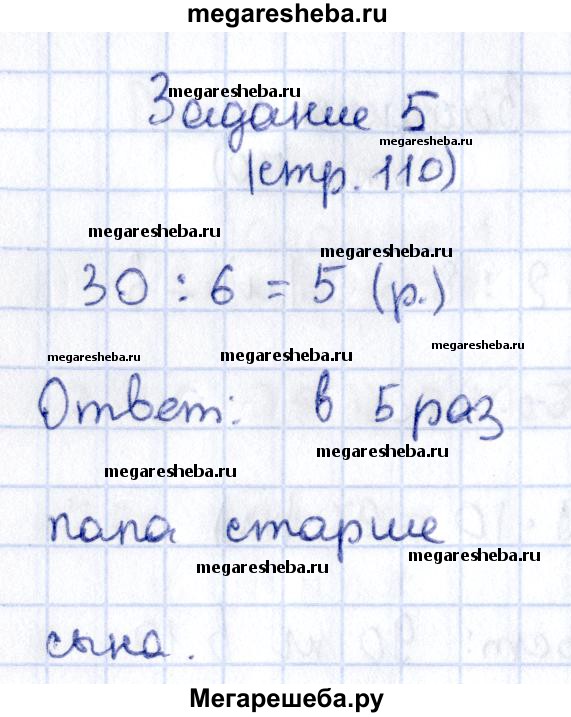 megaresheba.ru
megaresheba.ru
Задание 5
megaresheba.ru
(стр. 110)
megaresheba.ru
megaresheba.ru
30 : 6 = 5 (р.)
megaresheba.ru
megaresheba.ru
megaresheba.ru
Ответ: в 5 раз
megaresheba.ru
megaresheba.ru
папа старше
megaresheba.ru
megaresheba.ru
сына.
Мегарешеба.ру